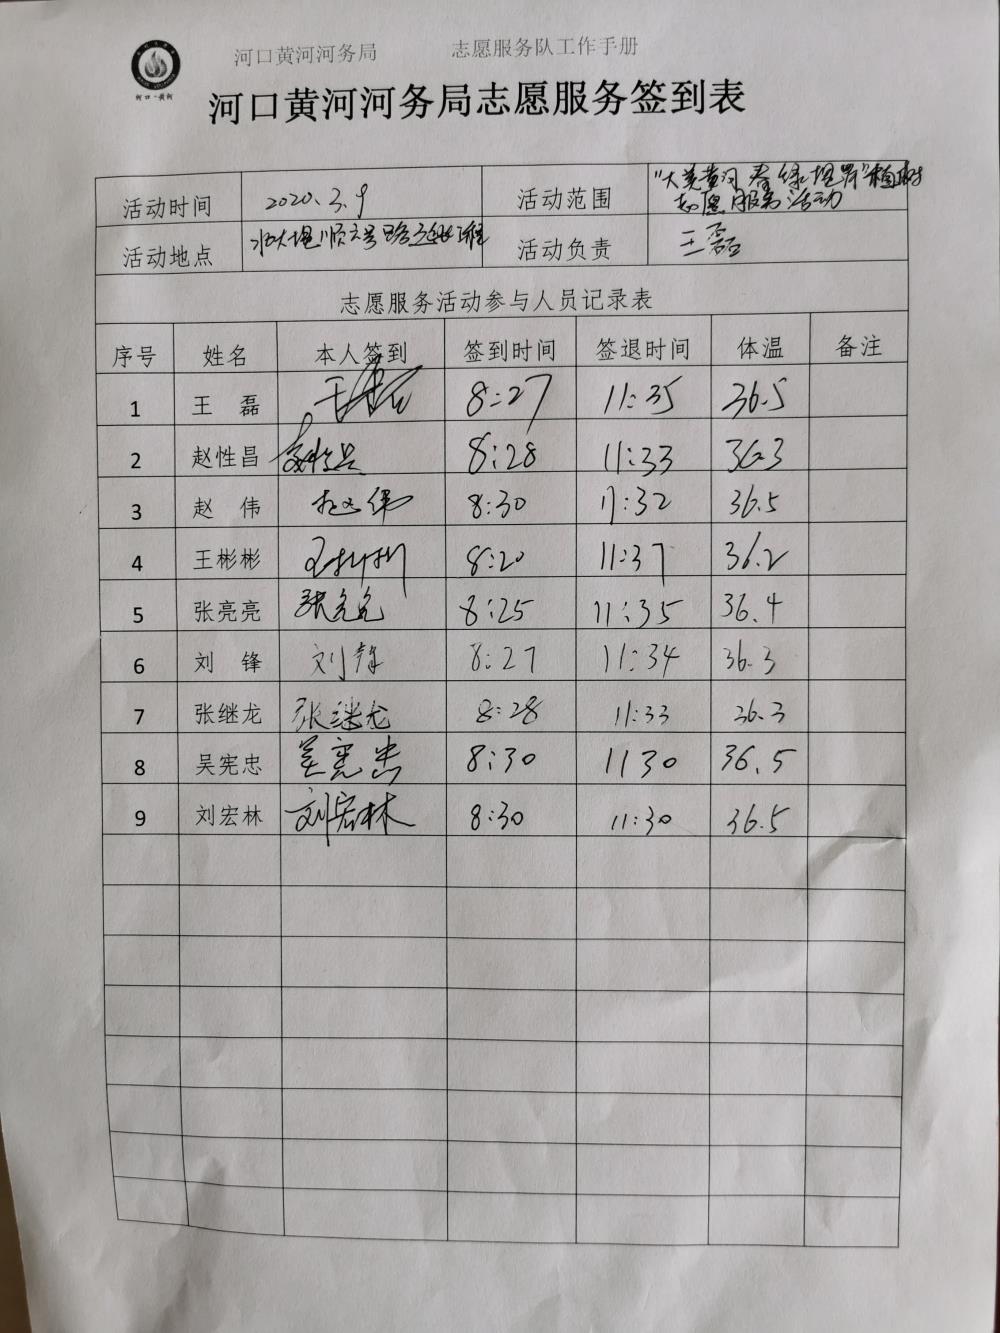 河口黄河河务局 志愿服务队工作手册
河口·黄河
河口黄河河务局志愿服务签到表
活动时间 2020.3.9 活动范围 "大美黄河 春绿堤岸"植树
志愿服务活动
活动地点 活动负责 王磊
志愿服务活动参与人员记录表
序号 姓名 本人签到 签到时间 签退时间 体温 备注
1 王磊 王磊 8:27 11:35 36.5
2 赵性昌 赵性昌 8:28 11:33 36.3
3 赵伟 赵伟 8:30 11:32 36.5
4 王彬彬 王彬彬 8:20 11:37 36.2
5 张亮亮 张亮亮 8:25 11:35 36.4
6 刘锋 刘锋 8:27 11:34 36.3
7 张继龙 张继龙 8:28 11:33 36.3
8 吴宪忠 吴宪忠 8:30 11 30 36.5
9 刘宏林 刘宏林 8:30 11:30 36.5